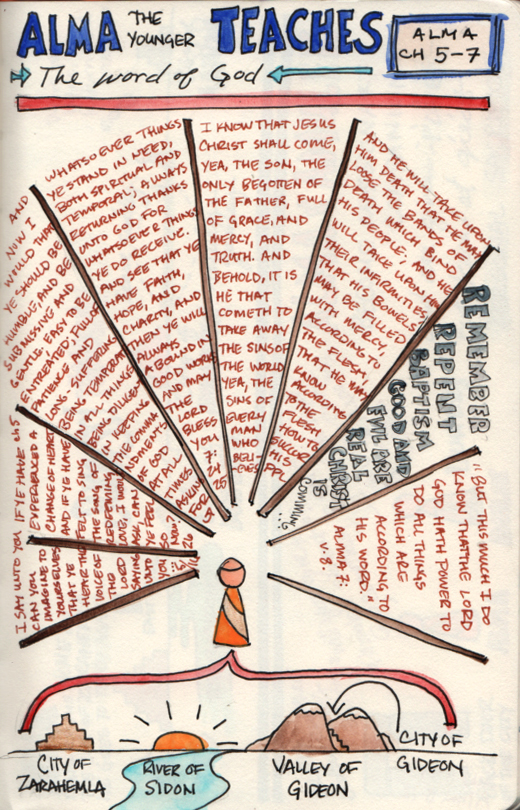 ALMA THE YOUNGER TEACHES
ALMA
CH 5-7
The word of God
I SAY UNTO YOU
CAN YOU
IMAGINE TO
YOURSELVES
THAT YE
HEAR THE
VOICE OF
THE
LORD
SAYING
UNTO
YOU
IF YE HAVE
EXPERIENCED A
CHANGE OF HEART
AND IF YE HAVE
FELT TO SING
THE SONG OF
REDEEMING
LOVE, I WOULD
ASK, CAN
YE FEEL
SO
NOW?
26
AND
NOW I
WOULD THAT
YE SHOULD BE
HUMBLE, AND BE
SUBMISSIVE AND
GENTLE; EASY TO BE
ENTREATED; FULL OF
PATIENCE AND
LONG SUFFERING
BEING TEMPERATE
IN ALL THINGS
BEING DILIGENT
IN KEEPING
THE COMMA
NDMENTS
OF GOD
AT ALL
TIMES
ASKING
FOR
WHATSOEVER THINGS
YE STAND IN NEED,
BOTH SPIRITUAL AND
TEMPORAL; ALWAYS
RETURNING THANKS
UNTO GOD FOR
WHATSOEVER THINGS
YE DO RECEIVE.
AND SEE THAT YE
HAVE FAITH,
HOPE, AND
CHARITY, AND
THEN YE WILL
ALWAYS
ABOUND IN
GOOD WORKS
AND MAY
THE
LORD
BLESS
YOU
7:
24
25
I KNOW THAT JESUS
CHRIST SHALL COME,
YEA, THE SON, THE
ONLY BEGOTTEN OF
THE FATHER, FULL
OF GRACE, AND
MERCY, AND
TRUTH. AND
BEHOLD, IT IS
HE THAT
COMETH TO
TAKE AWAY
THE SINS OF
THE WORLD
YEA, THE
SINS OF
EVERY
MAN
WHO
BELI-
EVES
AND HE WILL TAKE UPON
HIM DEATH THAT HE MAY
LOOSE THE BANDS OF
DEATH WHICH BIND
HIS PEOPLE. AND HE
WILL TAKE UPON HIM
THEIR INFIRMITIES
THAT HIS BOWELS
MAY BE FILLED
WITH MERCY,
ACCORDING TO
THE FLESH
THAT HE MAY
KNOW
ACCORDING
TO THE
FLESH
HOW TO
SUCCOR
HIS
PPL
REMEMBER
REPENT
BAPTISM
GOOD AND
EVIL ARE
REAL
CHRIST
IS
COMING...
"BUT THIS MUCH I DO
KNOW THAT THE LORD
GOD HATH POWER TO
DO ALL THINGS
WHICH ARE
ACCORDING TO
HIS WORD."
ALMA 7:
v. 8
CITY OF
ZARAHEMLA
RIVER OF
SIDON
VALLEY OF
GIDEON
CITY OF
GIDEON